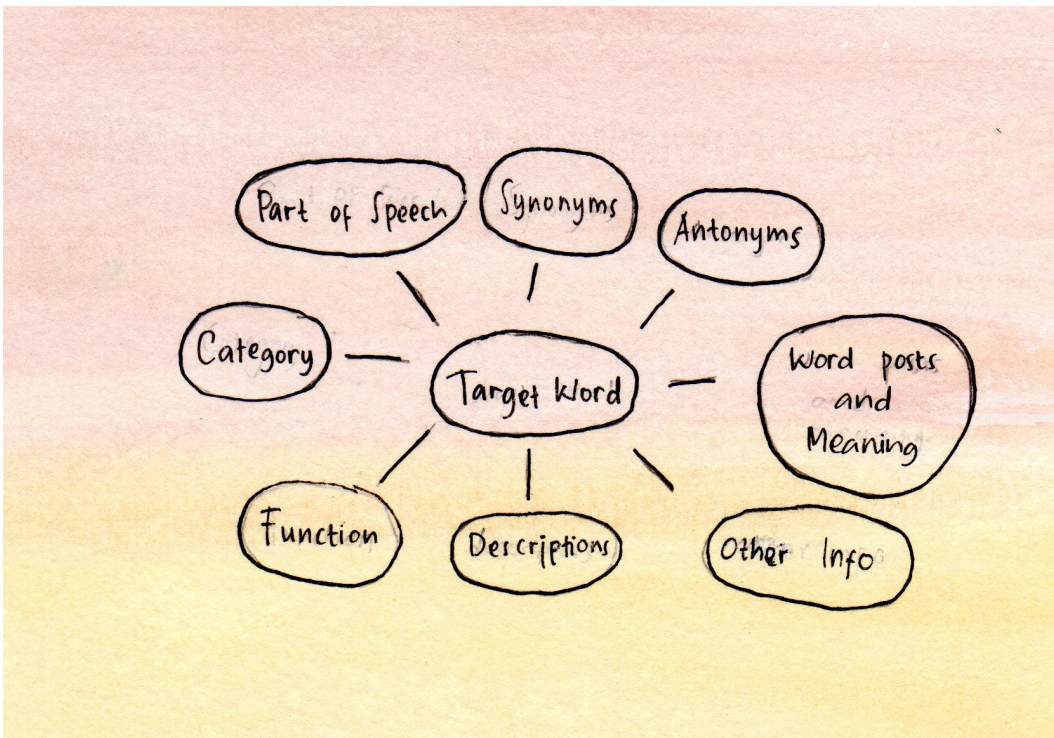 Part of Speech
Synonyms
Antonyms
Category
Target Word
Word posts
and
Meaning
Function
Descriptions
Other Info